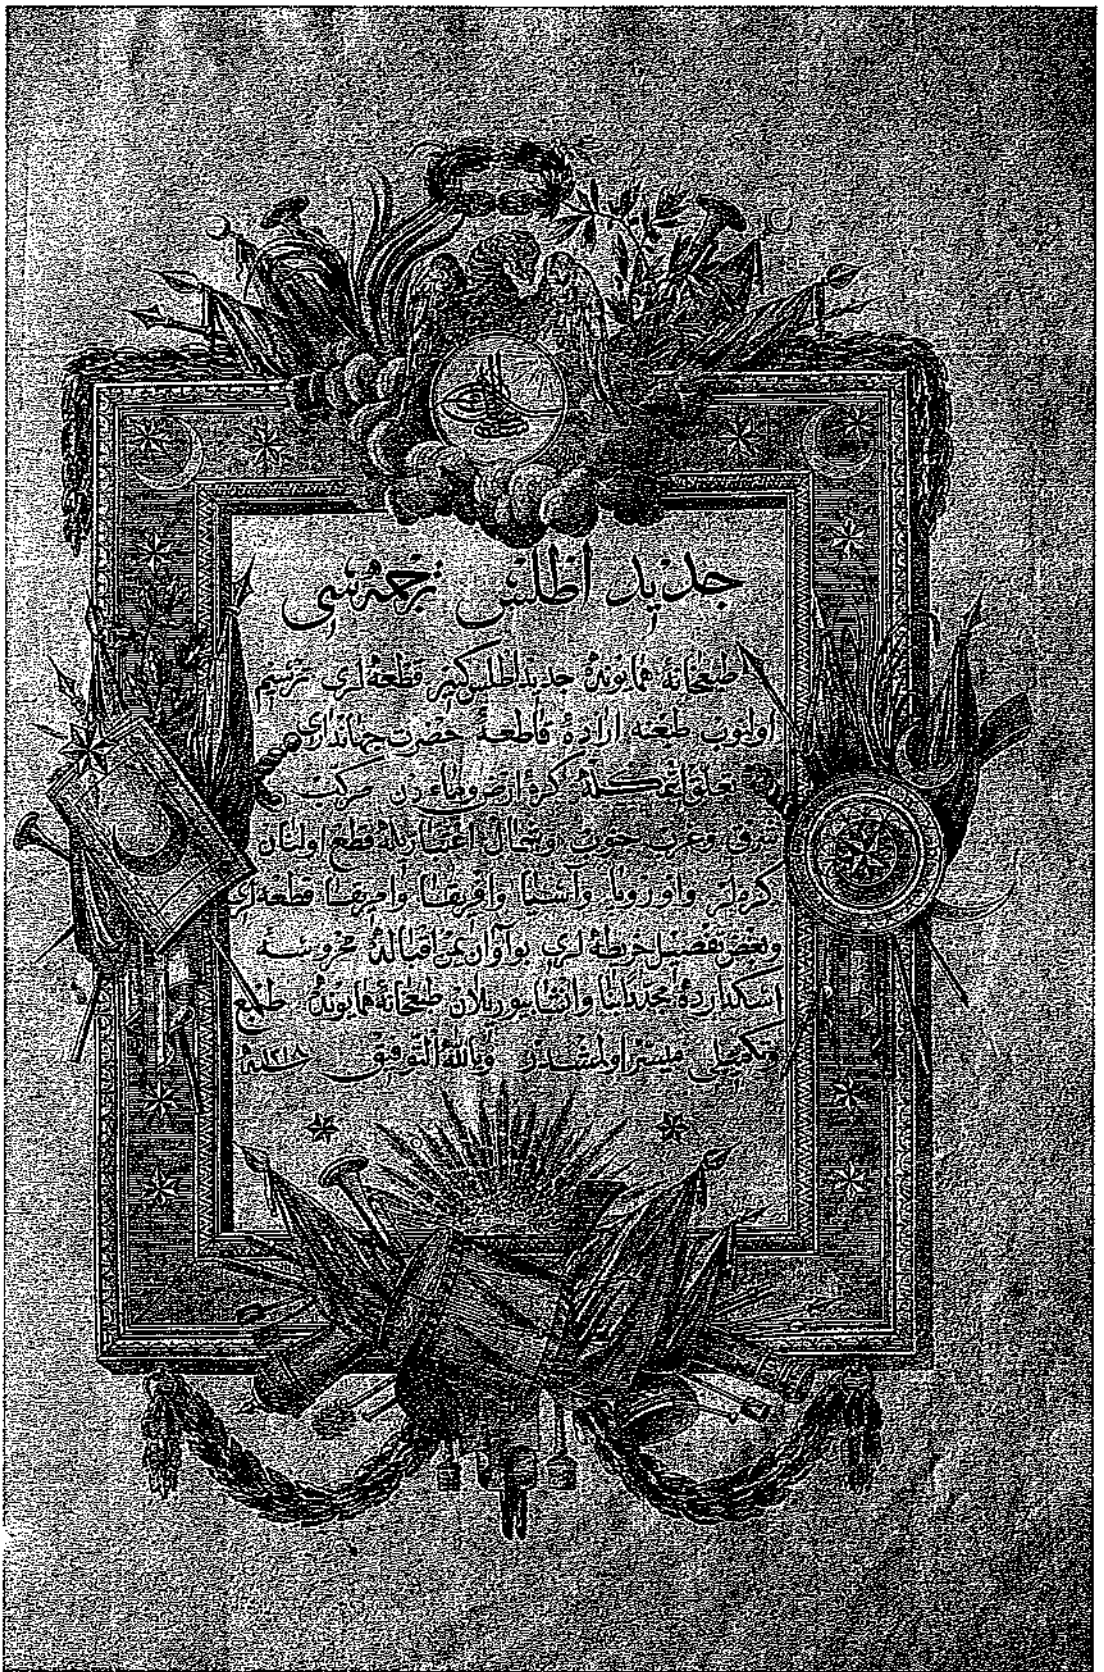 جديد اطلس ترجمه سى
طبعخانهٔ همايونده جديد اطلس كبير قطعه لرى ترسيم
اولنوب طبعنه ارادهٔ قاطعهٔ حضرت جهاندارى
تعلق ايتمكله كرهٔ ارض وماءدن مركب
شرق وغرب جنوب وشمال اعتباريله قطع اولنان
كره لر واوروپا وآسيا وافريقا وامريقا قطعه لرى
وبعض تفصيل خريطه لرى بو آوان اقباله محروسهٔ
اسكدارده مجددا بنا وانشا بيوريلان طبعخانهٔ همايونده طبع
وتكميلى ميسر اولمشدر وبالله التوفيق سنه ١٢١٨